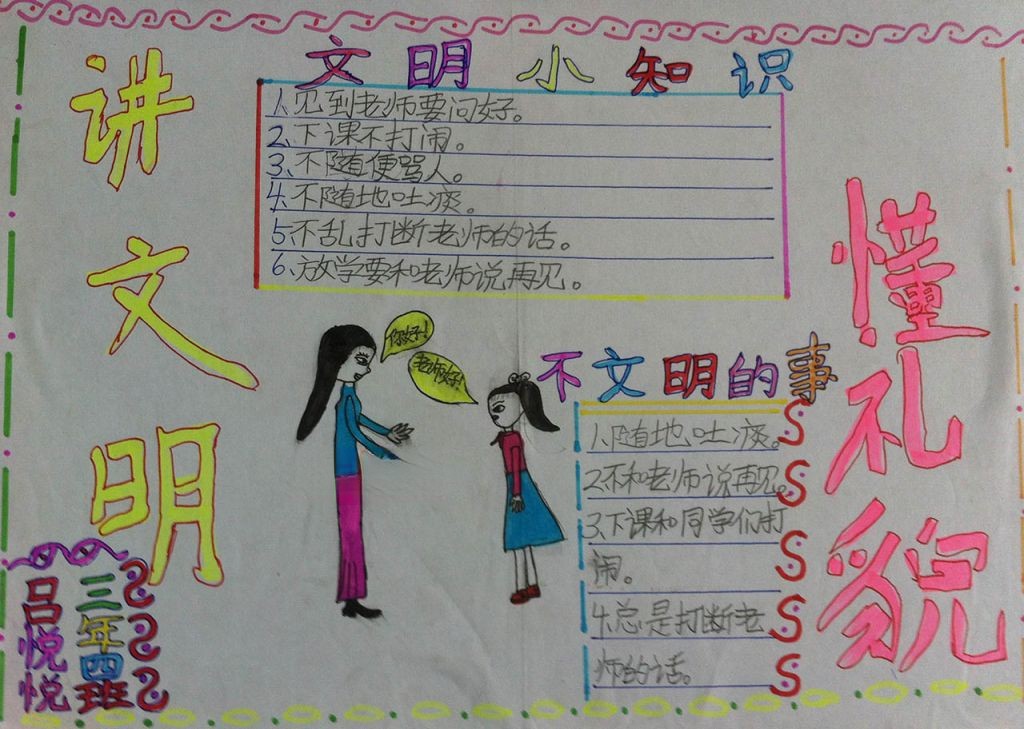 讲文明
文明小知识
1、见到老师要问好。
2、下课不打闹。
3、不随便骂人。
4、不随地吐痰。
5、不乱打断老师的话。
6、放学要和老师说再见。
懂礼貌
你好!
老师好!
不文明的事
1、随地吐痰。
2不和老师说再见。
3、下课和同学们打
闹。
4、总是打断老
师的话。
三年四班
吕悦悦